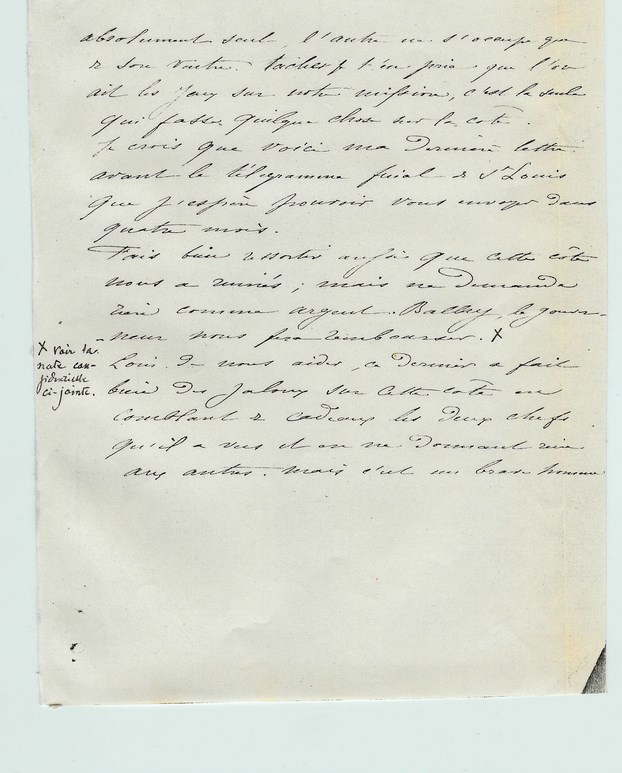 absolument seul, l'autre ne s'occupe que
de son ventre. Taches je t'en prie que l'on
ait les yeux sur notre mission, c'est la seule
qui fasse quelque chose sur la côte.
Je crois que voici ma dernière lettre
avant le télégramme final de St Louis
que j'espère pouvoir vous envoyer dans
quatre mois.
Fais bien ressortir aussi que cette côte
nous a ruinés ; mais ne demande
rien comme argent. Ballay, le gouver-
neur nous fera rembourser. X
X voir la
note con-
fidentielle
ci-jointe.
Loin de nous aider, ce dernier a fait
bien des jaloux sur cette côte en
comblant de cadeaux les deux chefs
qu'il a vus et en ne donnant rien
aux autres. Mais c'est un brave homme